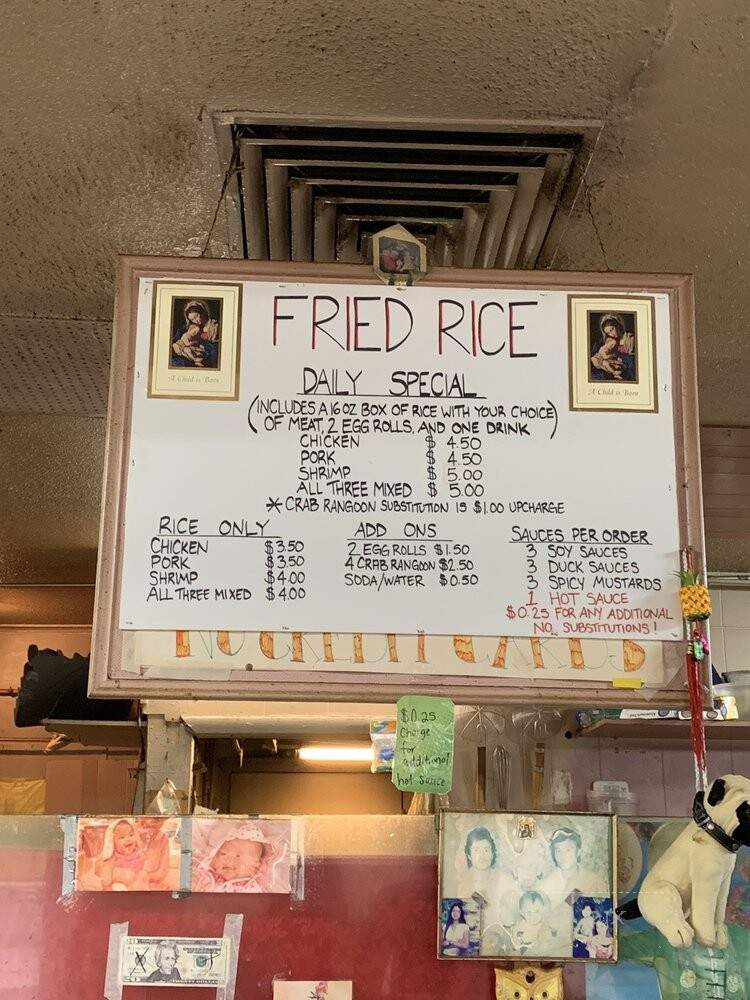 FRIED RICE
DAILY SPECIAL
(INCLUDES A 16 OZ BOX OF RICE WITH YOUR CHOICE
OF MEAT, 2 EGG ROLLS, AND ONE DRINK)
CHICKEN $ 4.50
PORK $ 4.50
SHRIMP $ 5.00
ALL THREE MIXED $ 5.00
* CRAB RANGOON SUBSTITUTION IS $1.00 UPCHARGE
A Child is Born
A Child is Born
RICE ONLY
CHICKEN $3.50
PORK $3.50
SHRIMP $4.00
ALL THREE MIXED $4.00
ADD ONS
2 EGG ROLLS $1.50
4 CRAB RANGOON $2.50
SODA/WATER $0.50
SAUCES PER ORDER
3 SOY SAUCES
3 DUCK SAUCES
3 SPICY MUSTARDS
1 HOT SAUCE
$0.25 FOR ANY ADDITIONAL
NO SUBSTITUTIONS!
NO CREDIT CARDS
$0.25
Charge
for
additional
hot Sauce
20